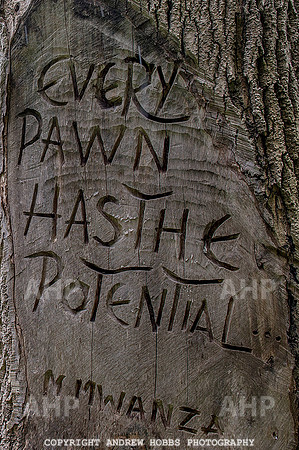 EVERY
PAWN
HAS THE
POTENTIAL...
M. MWANZA
AHP AHP
AHP AHP
COPYRIGHT ANDREW HOBBS PHOTOGRAPHY